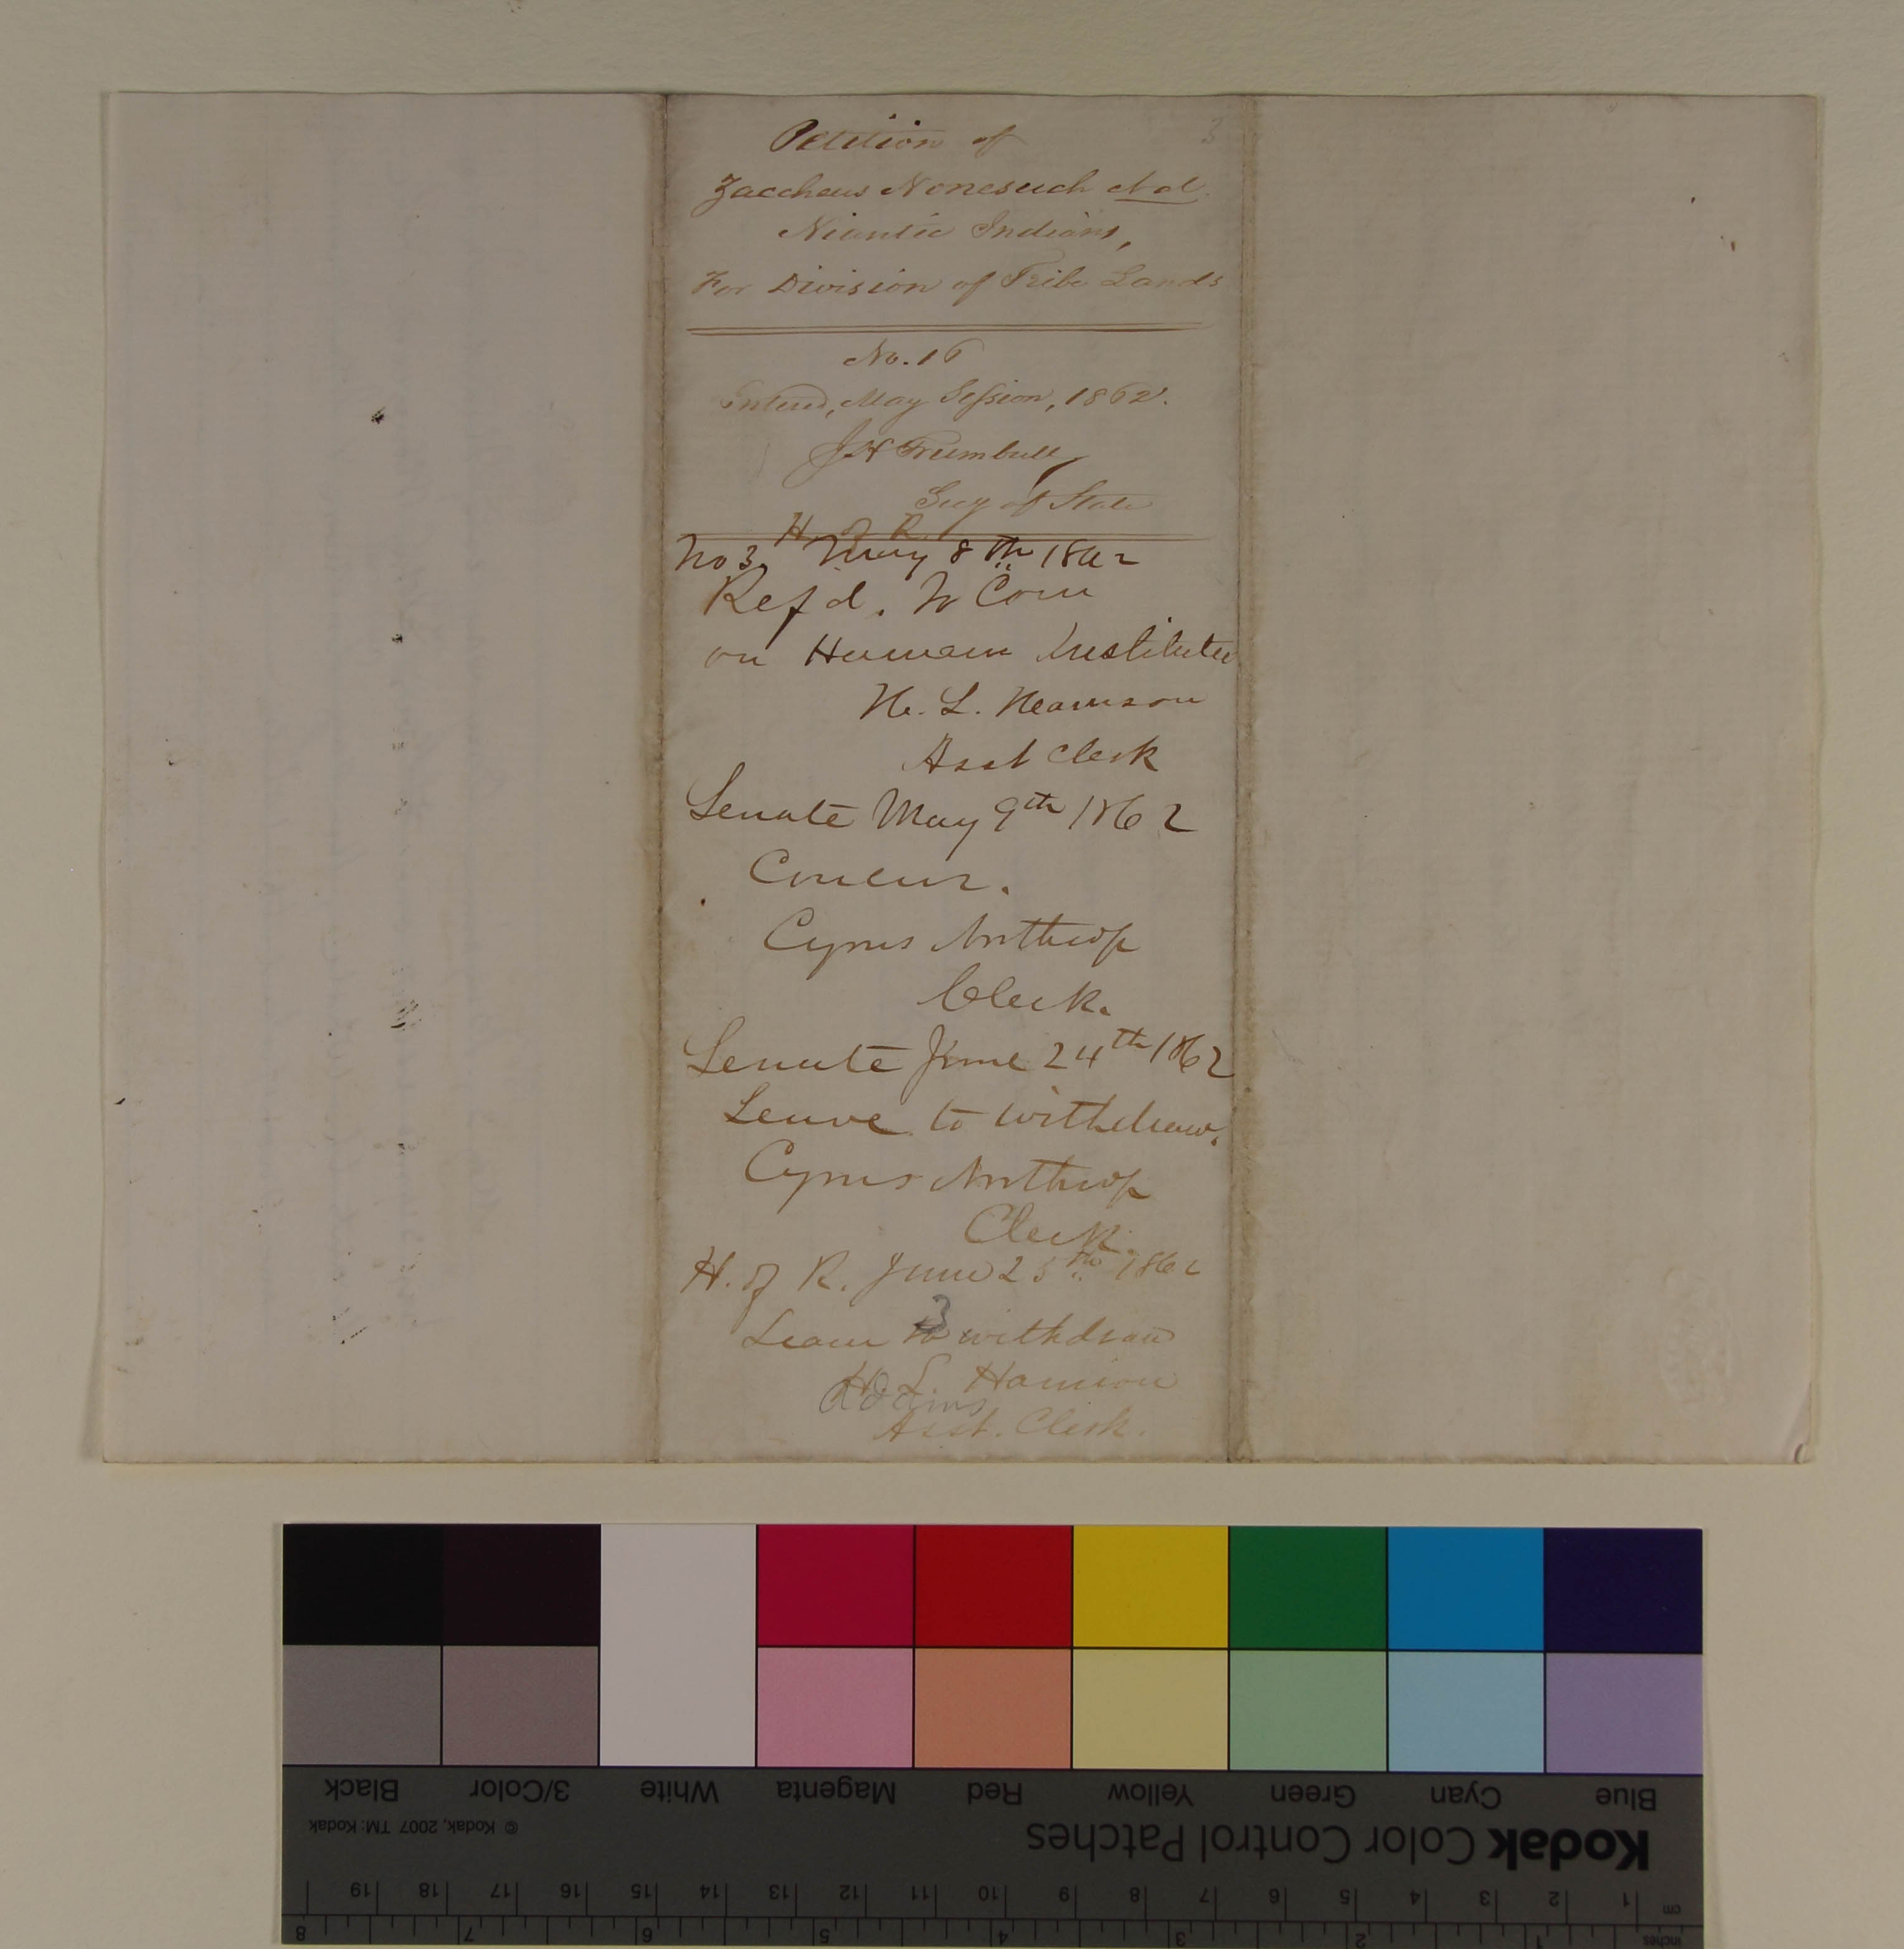 3
Petition of
Zaccheus Nonesuch et al.
Niantic Indians,
For Division of Tribe Lands
No. 16
Entered, May Session, 1862.
J H Trumbull
Secy of State
H. of R.
No 3. May 8th 1862
Refd. to Com
on Humane Institutu
H. L. Harrison
Asst Clerk
Senate May 9th 1862
Concur.
Cyrus Northrop
Clerk.
Senate June 24th 1862
Leave to withdraw.
Cyrus Northrop
Clerk.
H. of R. June 25th 1862
3
Leave to withdraw
H. L. Harrison
Asst. Clerk.
Black 3/Color White Magenta Red Yellow Green Cyan Blue
© Kodak, 2007 TM: Kodak
Kodak Color Control Patches
cm 1 2 3 4 5 6 7 8 9 10 11 12 13 14 15 16 17 18 19
inches 1 2 3 4 5 6 7 8